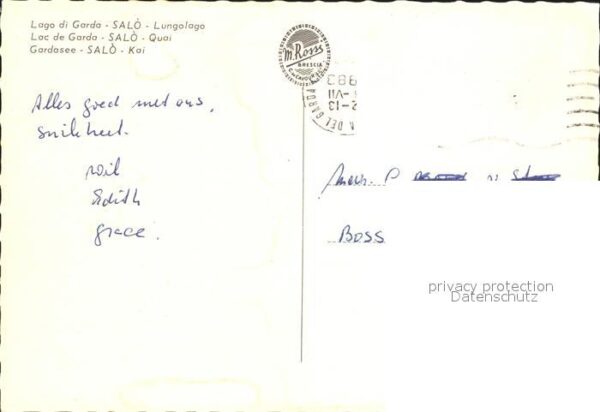 Lago di Garda - SALÒ - Lungolago
Lac de Garda - SALÒ - Quai
Gardasee - SALÒ - Kai
M. Ross
BRESCIA
DEL GARDA
2-13
-VII
Alles goed met ons,
snikheet.
Wil
Edith
Grace.
P
Boss
privacy protection
Datenschutz